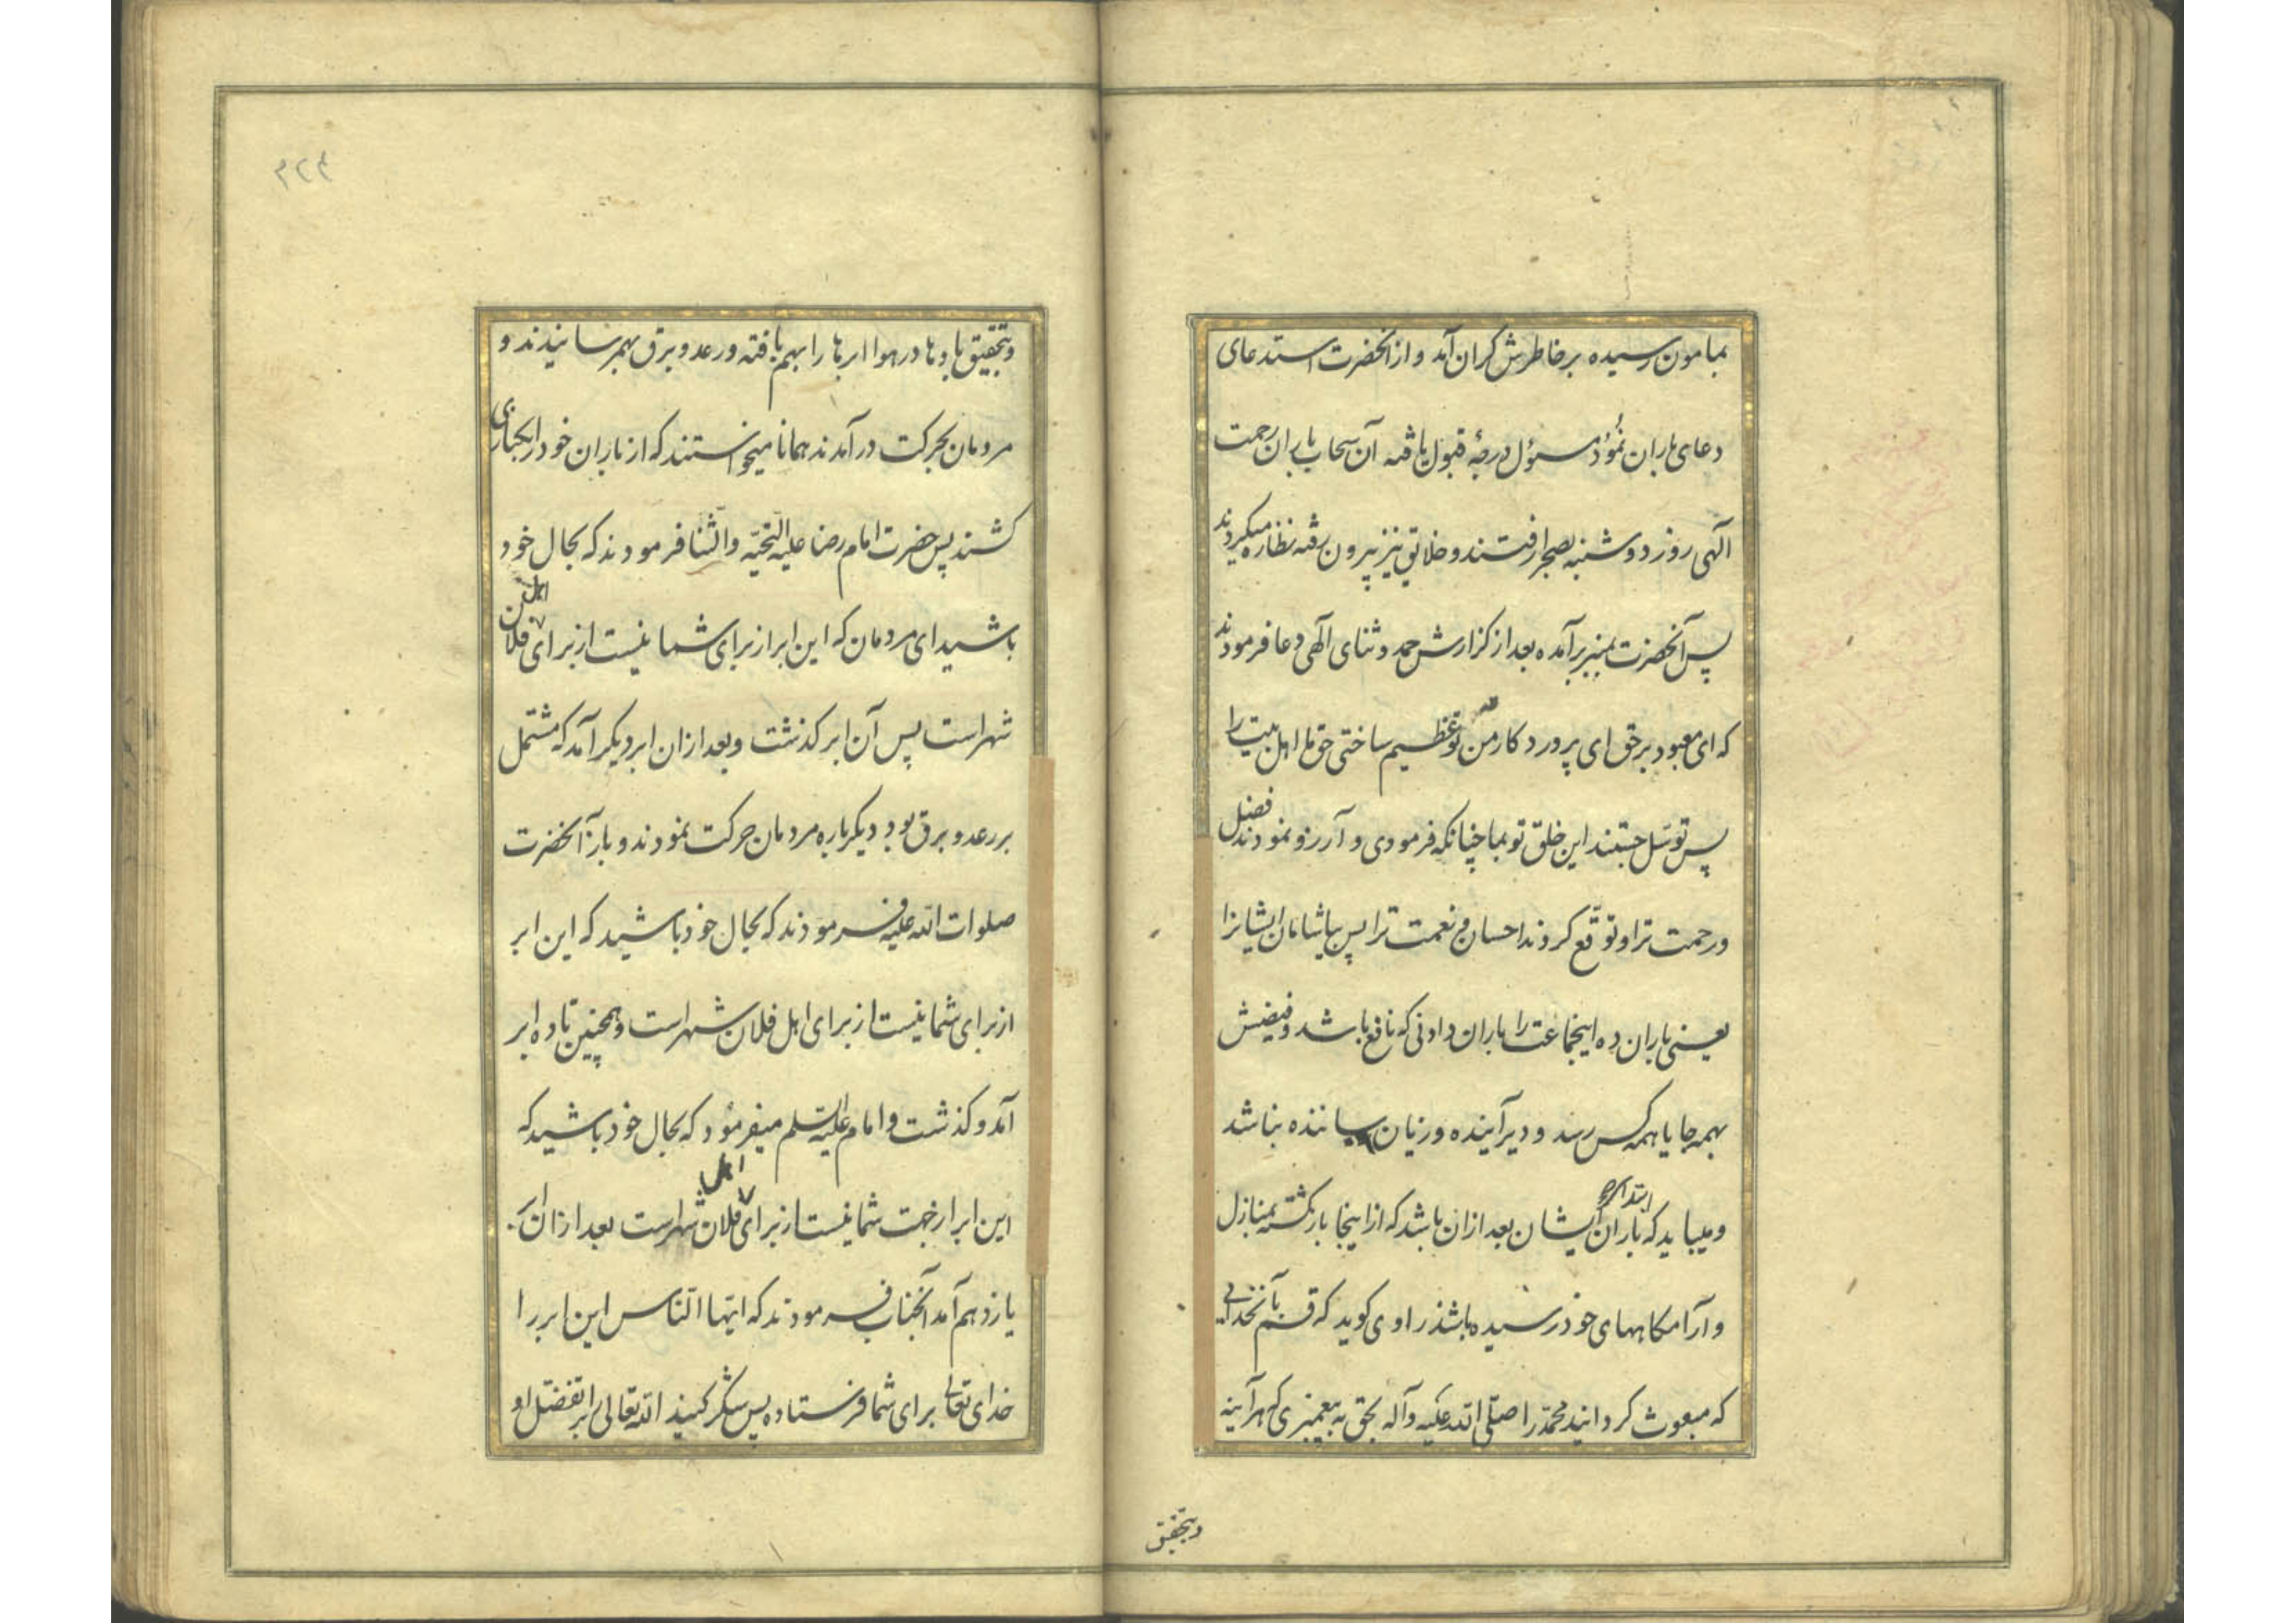 بمامون رسیده بر خاطرش گران آمد و از آنحضرت استدعای
دعای باران نمود مسؤل درجهٔ قبول یافته آن سحاب باران رحمت
آلهی روز دوشنبه بصحرا رفتند و خلایق نیز بیرون رفته نظاره میکردند
پس آنحضرت بمنبر برآمده بعد از گزارش حمد و ثنای الهی دعا فرمودند
که ای معبود برحق ای پروردکار من تو عظیم ساختی حق ما اهل بیت را
پس توسّل جستند این خلق تو بما چنانکه فرمودی و آرزو نمودند فضل
و رحمت ترا و توقّع کردند احسان و نعمت ترا پس بیاشامان ایشانرا
یعنی باران ده اینجماعت را باران دادنی که نافع باشد و فیضش
بهمه جا یا همه کس رسد و دیر آینده و زیان رساننده نباشد
و میباید که ابتداء باران ایشان بعد از ان باشد که از اینجا بازگشته بمنازل
و آرامکاههای خود رسیده باشند راوی کوید که قسم بآنخدایی
که مبعوث کردانید محمّد را صلّی الله علیه وآله بحق به پیغمبری که هرآینه
وبتحقیق
۳۲۴
وبتحقیق بادها در هوا ابرها را بهم بافته و رعد و برق بهمرسانیدند و
مردمان بحرکت درآمدند همانا میخواستند که از باران خود را بکناری
کشند پس حضرت امام رضا علیه التحیّه والثنا فرمودند که بحال خود
باشید ای مردمان که این ابر از برای شما نیست از برای اهل فلان
شهر است پس آن ابر کذشت و بعد ازان ابر دیکر آمد که مشتمل
بر رعد و برق بود دیکرباره مردمان حرکت نمودند و باز آنحضرت
صلوات الله علیه فرمودند که بحال خود باشید که این ابر
از برای شما نیست از برای اهل فلان شهر است و همچنین تا ده ابر
آمد و کذشت و امام علیه السلم میفرمود که بحال خود باشید که
این ابر از جهت شما نیست از برای اهل فلان شهر است بعد ازان که
یازدهم آمد آنجناب فرمودند که ایّها النّاس این ابر را
خدای تعالی برای شما فرستاده پس شکر کنید الله تعالی را بر تفضّل او